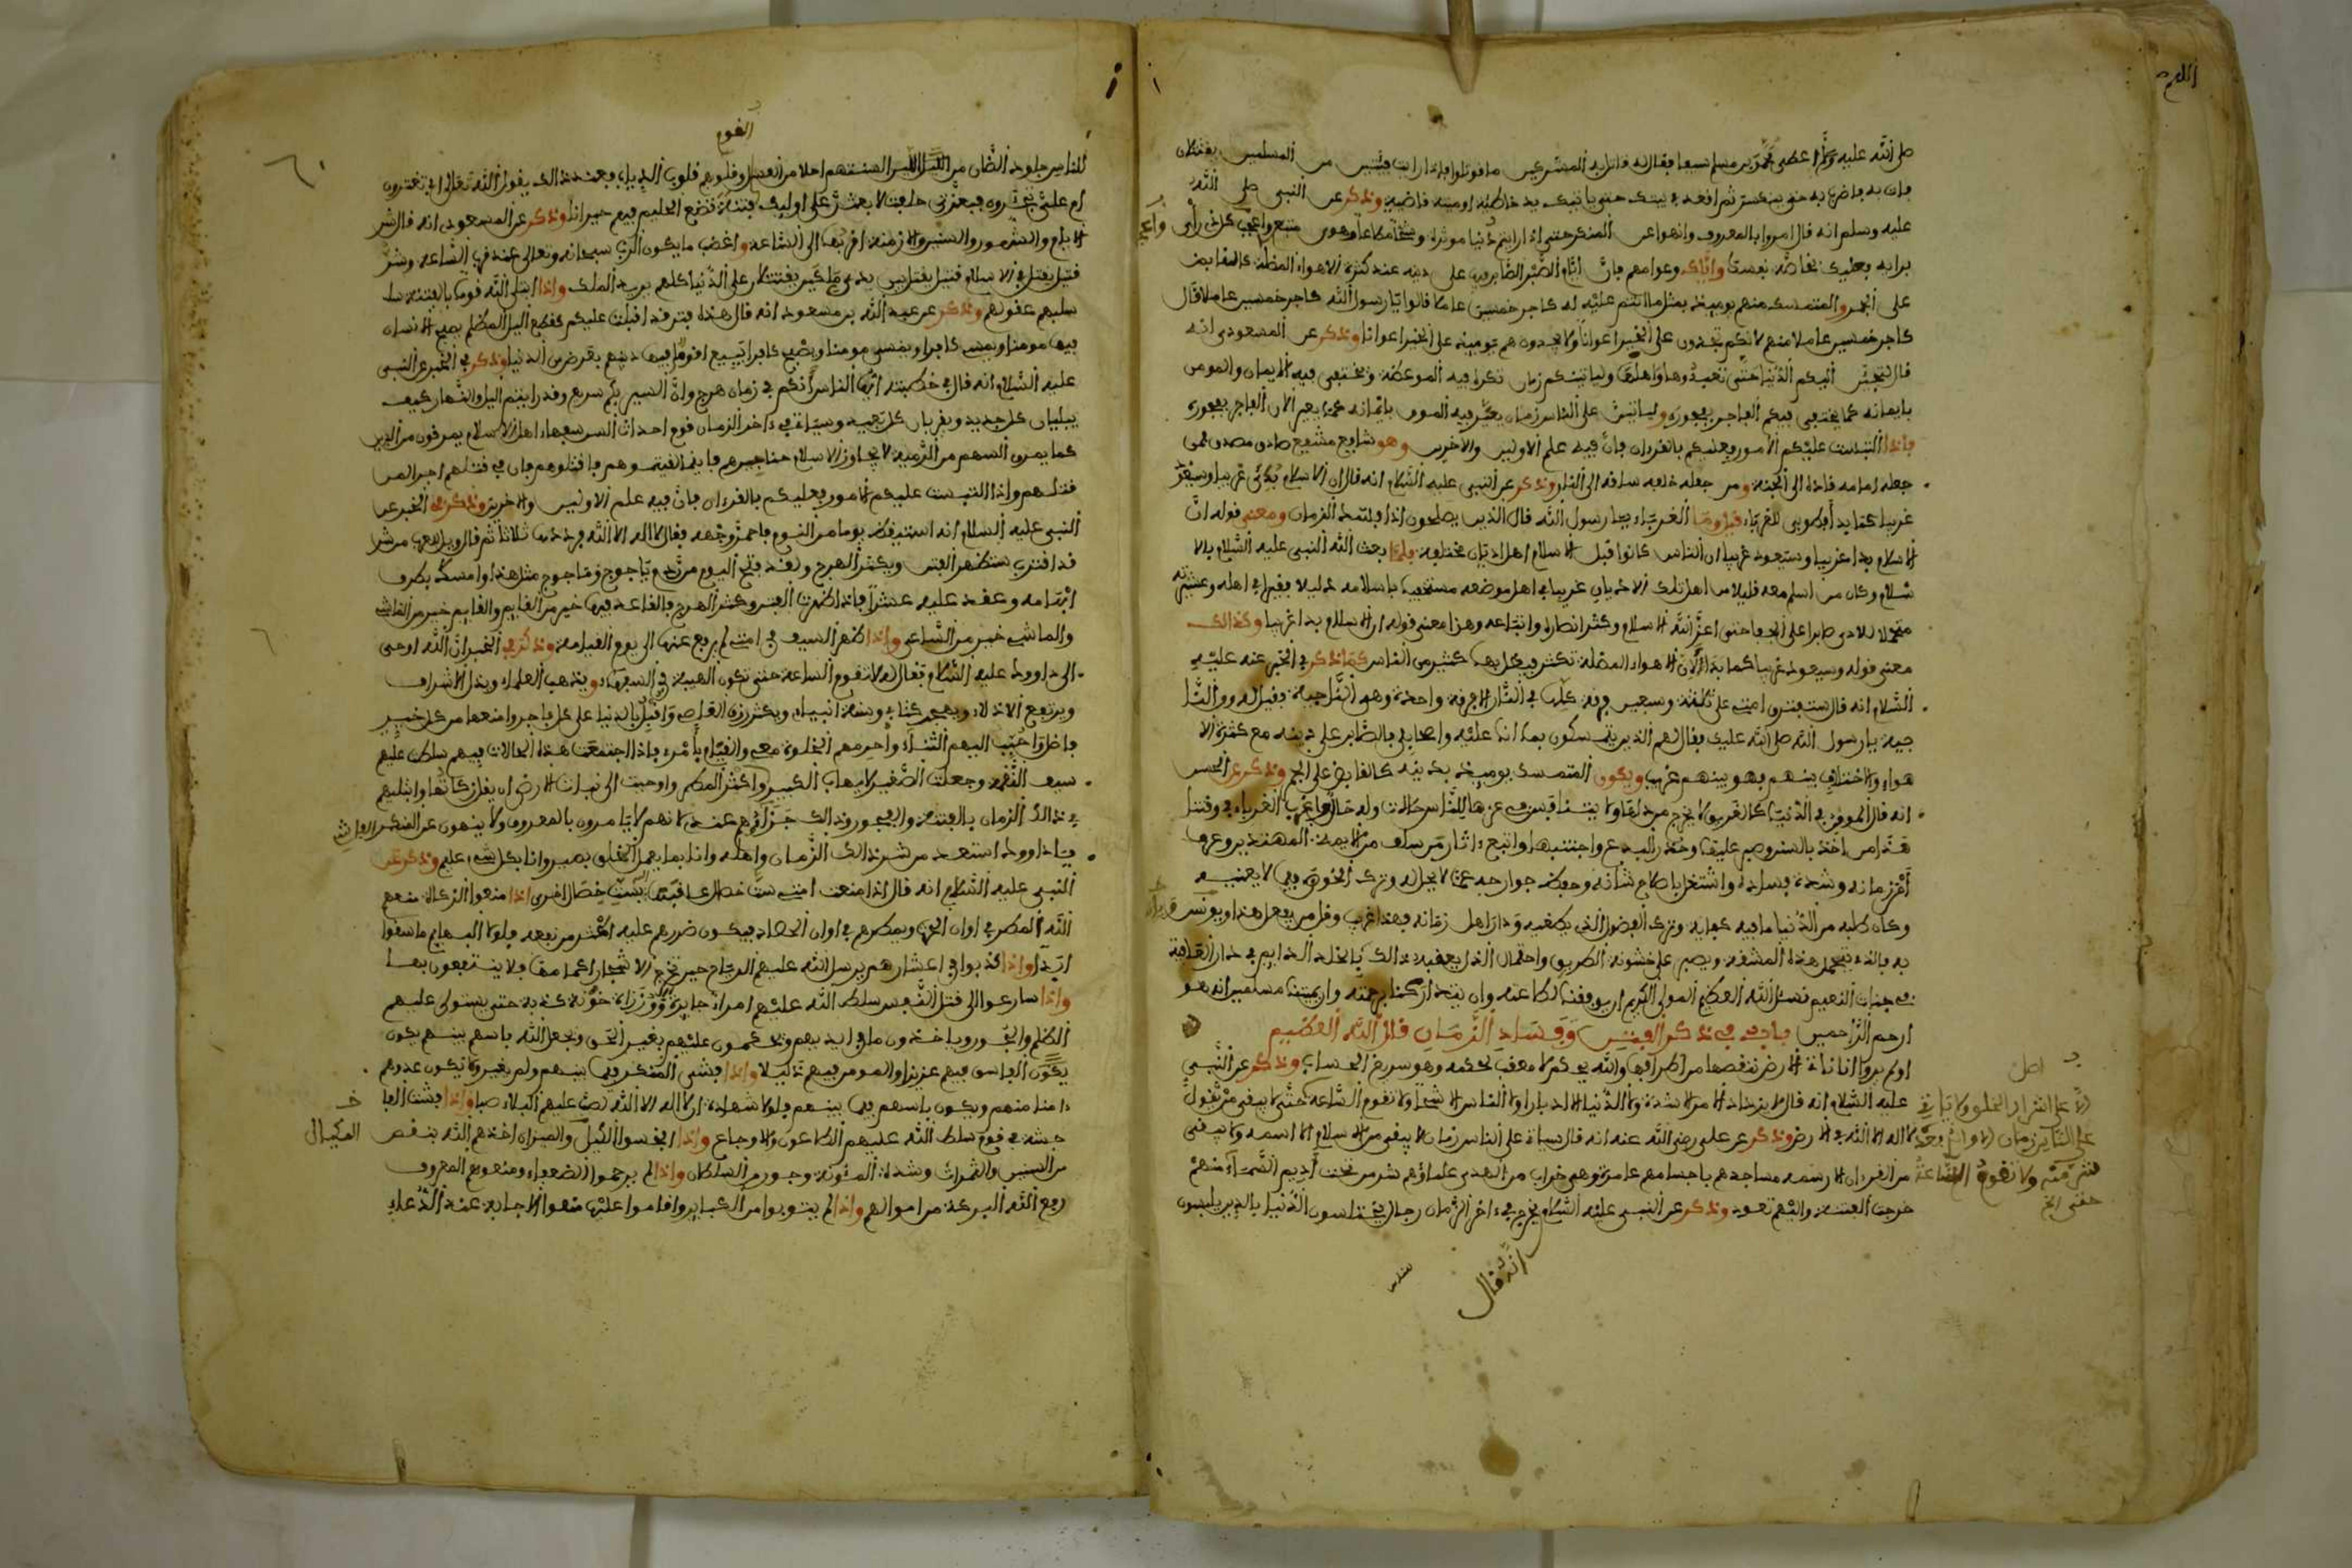 صلى الله عليه وسلم اعطى محمد بن مسلم سيفا فقال له قاتل به المشركين ما قوتلوا فاذا رايت فئتين من المسلمين يقتتلان
فات به فاضرب به حتى ينكسر ثم اقعد في بيتك حتى ياتيك يد خاطئة او منية قاضية وذكر عن النبي صلى الله
عليه وسلم انه قال امروا بالمعروف وانهوا عن المنكر حتى اذا رايتم دنيا موثرة وشحا مطاعا وهوى متبع واعجب كل ذي رأي
برايه فعليك بخاصة نفسك واياك وعوامهم فان ايام الصبر الصابر فيها على دينه عند كثرة الاهواء المضلة كالقابض
على الجمر والمتمسك منهم يوميذ بمثل ما انتم عليه له كاجر خمسين عاملا قالوا يا رسول الله كاجر خمسين عاملا قال
كاجر خمسين عاملا منهم لانكم تجدون على الخير اعوانا ولا يجدون هم يوميذ على الخير اعوانا وذكر عن المسعودي انه
قال اليكم الدنيا حتى تعبدوها واهلها ولياتينكم زمان تكره فيه الموعظة ويختفى فيه الايمان والمومن
بايمانه كما يختفى فيكم الفاجر بفجوره ولياتين على الناس زمان يعير فيه المومن بايمانه كما يعير الان الفاجر بفجوره
فاذا التبست عليكم الامور فعليكم بالقرءان فان فيه علم الاولين والاخرين وهو شافع مشفع صادق مصدق فمن
جعله امامه قاده الى الجنة ومن جعله خلفه ساقه الى النار وذكر عن النبي عليه السلام انه قال ان الاسلام بدئ غريبا وسيعود
غريبا كما بدأ فطوبى للغرباء قيل وما الغرباء يا رسول الله قال الذين يصلحون اذا فسد الزمان ومعنى قوله ان
الاسلام بدا غريبا وسيعود غريبا ان الناس كانوا قبل الاسلام اهل اديان مختلفة فلما بعث الله النبي عليه السلام بالا
سلام وكان من اسلم معه قليلا من اهل تلك الاديان غريبا في اهل موضعه مستخفيا باسلامه ذليلا فقيرا في اهله وعشيرته
متحملا للاذى صابرا على الجفا حتى اعز الله الاسلام وكثر انصاره واتباعه وهذا معنى قوله ان الاسلام بدا غريبا وكذالك
معنى قوله وسيعود غريبا كما بدا الان الاهواء المضلة تكثر فيضل بها كثير من الناس كما ذكر في الخبر عنه عليه
السلام انه قال ستفترق امتي على ثلاثة وسبعين فرقة كلها في النار الا فرقة واحدة وهي الناجية فقيل له ومن النا
جية يا رسول الله صلى الله عليك فقال هم الذين يتمسكون بما انا عليه واصحابي بالصابر على دينه مع كثرة الا
هواء والاختلاف بينهم فهو بينهم غريب ويكون المتمسك يوميذ بدينه كالقابض على الجمر وذكر عن الحسن
انه قال المومن في الدنيا كالغريب لا يجزع من ذلها ولا ينافس في عزها للناس حال وله حال واغرب الغرباء في وقتنا
هذا من اخذ بالسنن وصبر عليها وحذر البدع واجتنبها واتبع اثار من سلف من الايمة المهتدين وعرف
أمر زمانه وشدة فساده واشتغل باصلاح شأنه وحفظ جوارحه عما لا يحل له وترك الخوض فيما لا يعنيه
وكان طلبه من الدنيا ما فيه كفاية وترك الفضول الذي يطغيه ودارا اهل زمانه فهذا غريب وقل من يفعل هذا
في جنات النعيم نسئل الله العظيم المولى الكريم ان يوفقنا لطاعته وان يتداركنا برحمته وان يميتنا مسلمين انه هو
ارحم الراحمين باب في ذكر الفتن وفساد الزمان قال الله العظيم
اولم يروا انا ناتي الارض ننقصها من اطرافها والله يحكم لا معقب لحكمه وهو سريع الحساب وذكر عن النبي
عليه السلام انه قال لا يزداد الامر الا شدة ولا الدنيا الا ادبارا ولا الناس الا شحا ولا تقوم الساعة حتى لا يبقى من يقول
لا اله الا الله في الارض وذكر عن علي رضي الله عنه انه قال سياتي على الناس زمان لا يبقى من الاسلام الا اسمه ولا يبقى
من القرءان الا رسمه مساجدهم باجسامهم عامرة وهي خراب من الهدى علماؤهم شر من تحت أديم السماء منهم
خرجت الفتنة واليهم تعود وذكر عن النبي عليه السلام يخرج في ءاخر الزمان رجال يختلسون الدنيا بالدين يلبسون
انه قال
اصل
ولا تقوم الساعة
حتى الخ
القوم
للناس جلود الضان من اللين السنتهم احلا من العسل وقلوبهم قلوب الذياب فعند ذالك يقول الله تعالى ابي تغترون
ام علي تجترءون فبعزتي حلفت لابعثن على اوليك فتنة تضع الحليم فيهم حيرانا وذكر عن المسعودي انه قال شر
الايام والشهور والسنين والازمنة اقربها الى الساعة واغضب ما يكون الرب سبحانه وتعالى عند قرب الساعة وشر
قتيل يقتل في الاسلام قتيل يقتل بين يدي ملكين يقتتلان على الدنيا كلهم يريد الملك واذا ابتلى الله قوما بالفتنة سلـ
سلبهم عقولهم وذكر عن عبد الله بن مسعود انه قال هذه فتن قد اقبلت عليكم كقطع اليل المظلم يصبح الانسان
فيها مومنا ويمسي كافرا ويمسي مومنا ويصبح كافرا يبيع اقوام فيها دينهم بعرض من الدنيا وذكر في الخبر عن النبي
عليه السلام انه قال في خطبته ايها الناس انكم في زمان هرج وان السير بكم سريع وقد رايتم اليل والنهار كيف
يبليان كل جديد ويقربان كل بعيد وسياتي في ءاخر الزمان قوم احداث السن سفهاء اهل الاسلام يمرقون من الدين
كما يمرق السهم من الرمية لا يجاوز الاسلام حناجرهم فاينما لقيتموهم فاقتلوهم فان في قتلهم اجرا لمن
قتلهم واذا التبست عليكم الامور فعليكم بالقرءان فان فيه علم الاولين والاخرين وذكر في الخبر عن
النبي عليه السلام انه استيقظ يوما من النوم فاحمر وجهه فقال لا اله الا الله يرددها ثلاثا ثم قال ويل للعرب من شر
قد اقترب ستظهر الفتن ويكثر الهرج ولقد فتح اليوم من ردم ياجوج وماجوج مثل هذا وامسك بطرف
ابهامه وعقد عليه عشرا فاذا ظهرت الفتن وكثر الهرج فالقاعد فيها خير من القايم والقايم خير من الماشي
والماشي خير من الساعي واذا ظهر السيف في امتي لم يرفع عنها الى يوم القيامة وذكر في الخبر ان الله اوحى
الى داوود عليه السلام فقال له لا تقوم الساعة حتى تكون الهيبة في السفهاء ويذهب العلماء ويذل الاشراف
ويرتفع الانذال ويهجر كتابي وسنة انبياي ويكثر رزق العاصي واقبل بالدنيا على كل فاجر وامنعها من كل خير
سيف النقمة وجعلت الصغير لا يهاب الكبير واكثر المطر واوحيت الى نبات الارض ان يقل زكاتها وابتليهم
في ذالك الزمان بالفتنة والفجور وذالك جزاؤهم عندي لانهم لا يامرون بالمعروف ولا ينهون عن المنكر
يا داوود استعذ من شر ذالك الزمان واهله وانا بما يعمل الخلق بصير وانا بكل شيء عليم وذكر عن
النبي عليه السلام انه قال اذا منعت امتي ست خصال عاقبتها بست خصال اخرى اذا منعوا الزكاة منعهم
الله المطر في اوان الحرث ويمطرهم في اوان الحصاد فيكون ضررهم عليه اكثر من نفعه ولولا البهايم ما سقوا
ابدا واذا كذبوا في اعشارهم يرسل الله عليهم الرياح حين تخرج الاشجار اكمامها فلا ينتفعون بها
واذا سارعوا الى قتل النفس سلط الله عليهم امراء جايرة ووزراء خونة كذبة حتى يستولى عليهم
الظلم والجور وياخذون ما في ايديهم ويحكمون عليهم بغير الحق ويجعل الله باسهم بينهم يكون
يكون الفاسق فيهم عزيزا والمومن فيهم ذليلا واذا فشى المنكر فيما بينهم ولم يغير ولا يكون عدوهم
ءامنا منهم ويكون باسهم فيما بينهم فلولا شهادة ان لا اله الا الله لصب عليهم البلاء صبا واذا فشت الفا
حشة في قوم سلط الله عليهم الطاعون والاوجاع واذا ابخسوا الكيل والميزان اخذهم الله بنقص
من السنين والثمرات وشدة المئونة وجور من السلطان واذا لم يرحموا الضعفاء ومنعوهم المعروف
رفع الله البركة من اموالهم واذا لم يتوبوا من الكباير واقاموا عليها منعوا الاجابة عند الدعاء
المكيال